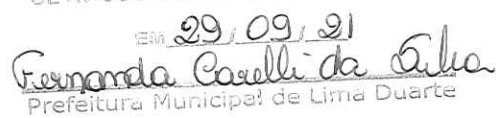 EM 29/09/21
Fernanda Carelli da Silva
Prefeitura Municipal de Lima Duarte